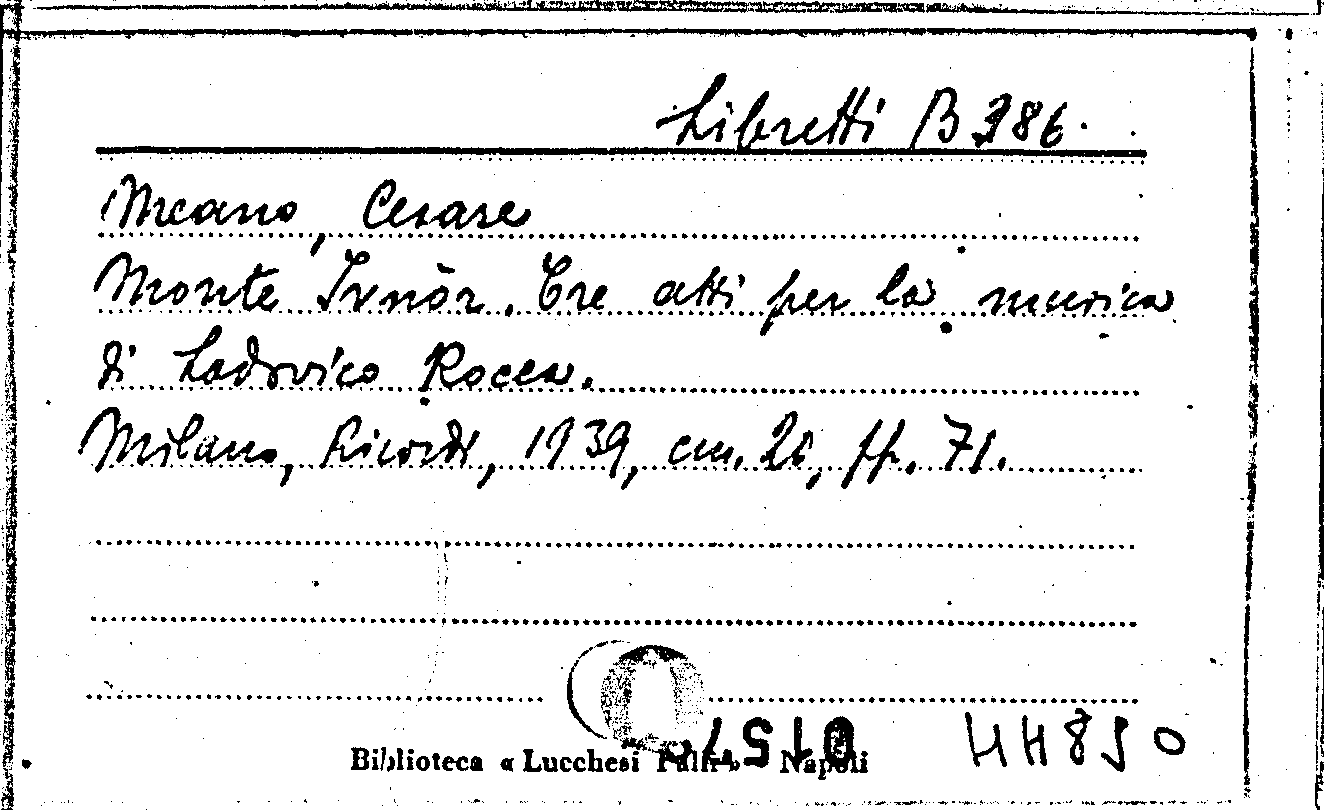 Libretti B 386.
Meano, Cesare
Monte Ivnòr. Tre atti per la musica
di Lodovico Rocca.
Milano, Ricordi, 1939, cm. 20, ff. 71.
Biblioteca « Lucchesi Palli » Napoli